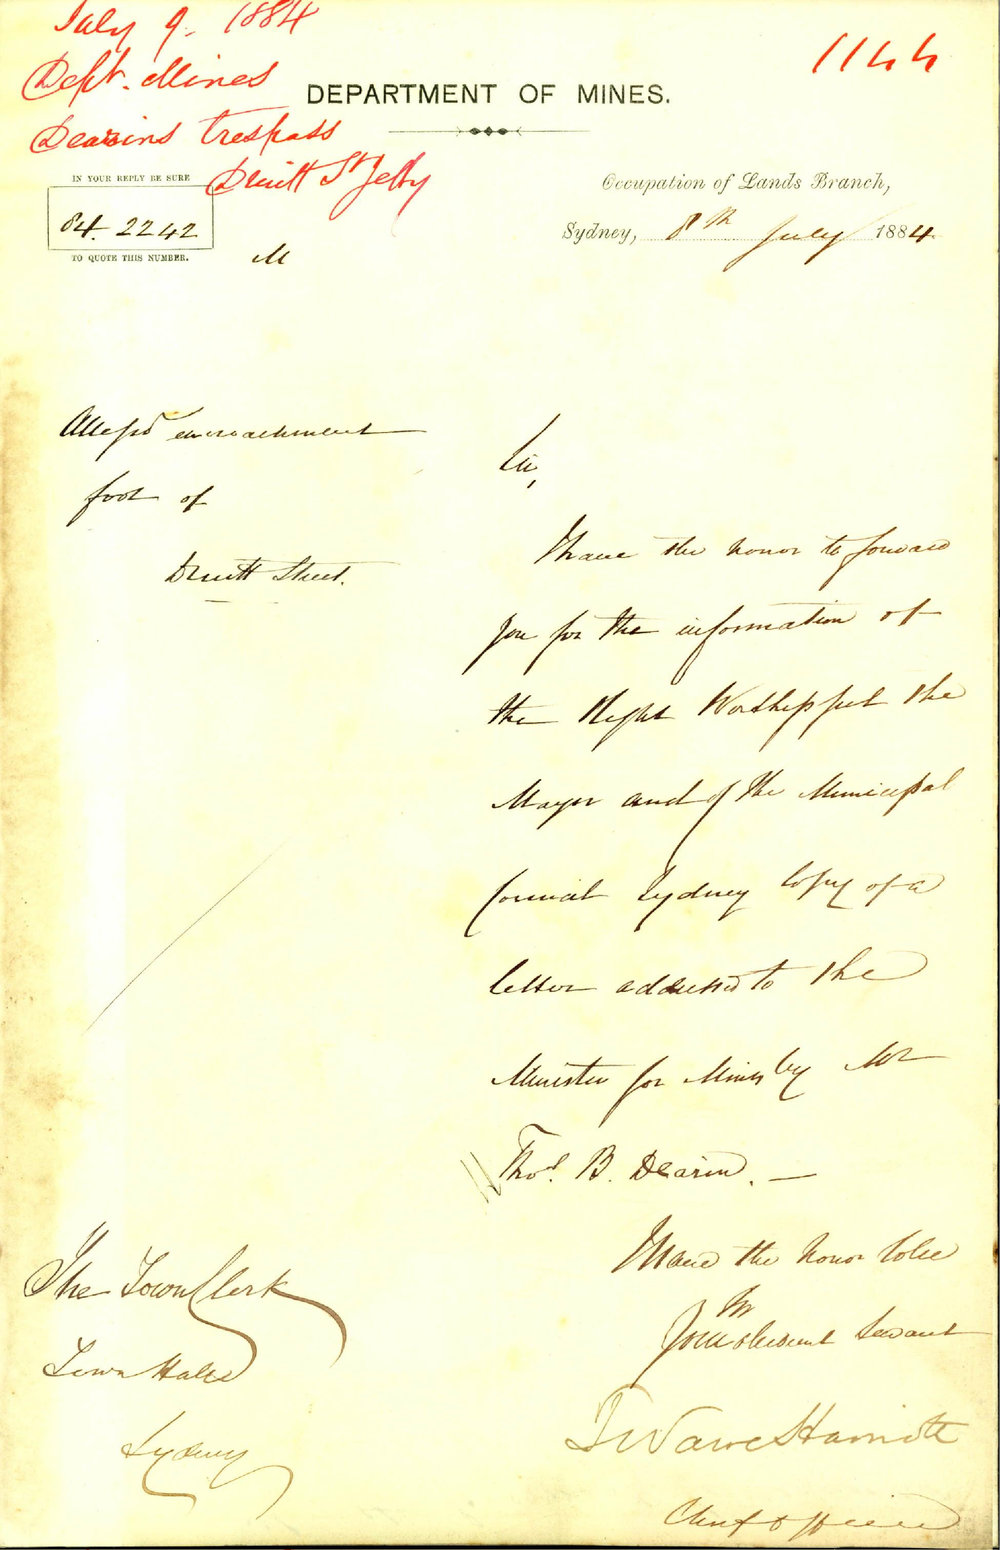 July 9. 1884
Dept. Mines
Dearins trespass
Druitt St Jetty
1144
DEPARTMENT OF MINES.
IN YOUR REPLY BE SURE
84. 2242
TO QUOTE THIS NUMBER.
M
Occupation of Lands Branch,
Sydney, 8th July 1884.
Alleged encroachment
foot of
Druitt Street.
Sir,
I have the honor to forward
you for the information of
the Right Worshipful the
Mayor and of the Municipal
Council Sydney Copy of a
letter addressed to the
Minister for Mines by Mr
Thos. B. Dearin. —
I have the honor to be
Sir
Your obedient Servant
Chief Officer
The Town Clerk
Town Hall
Sydney